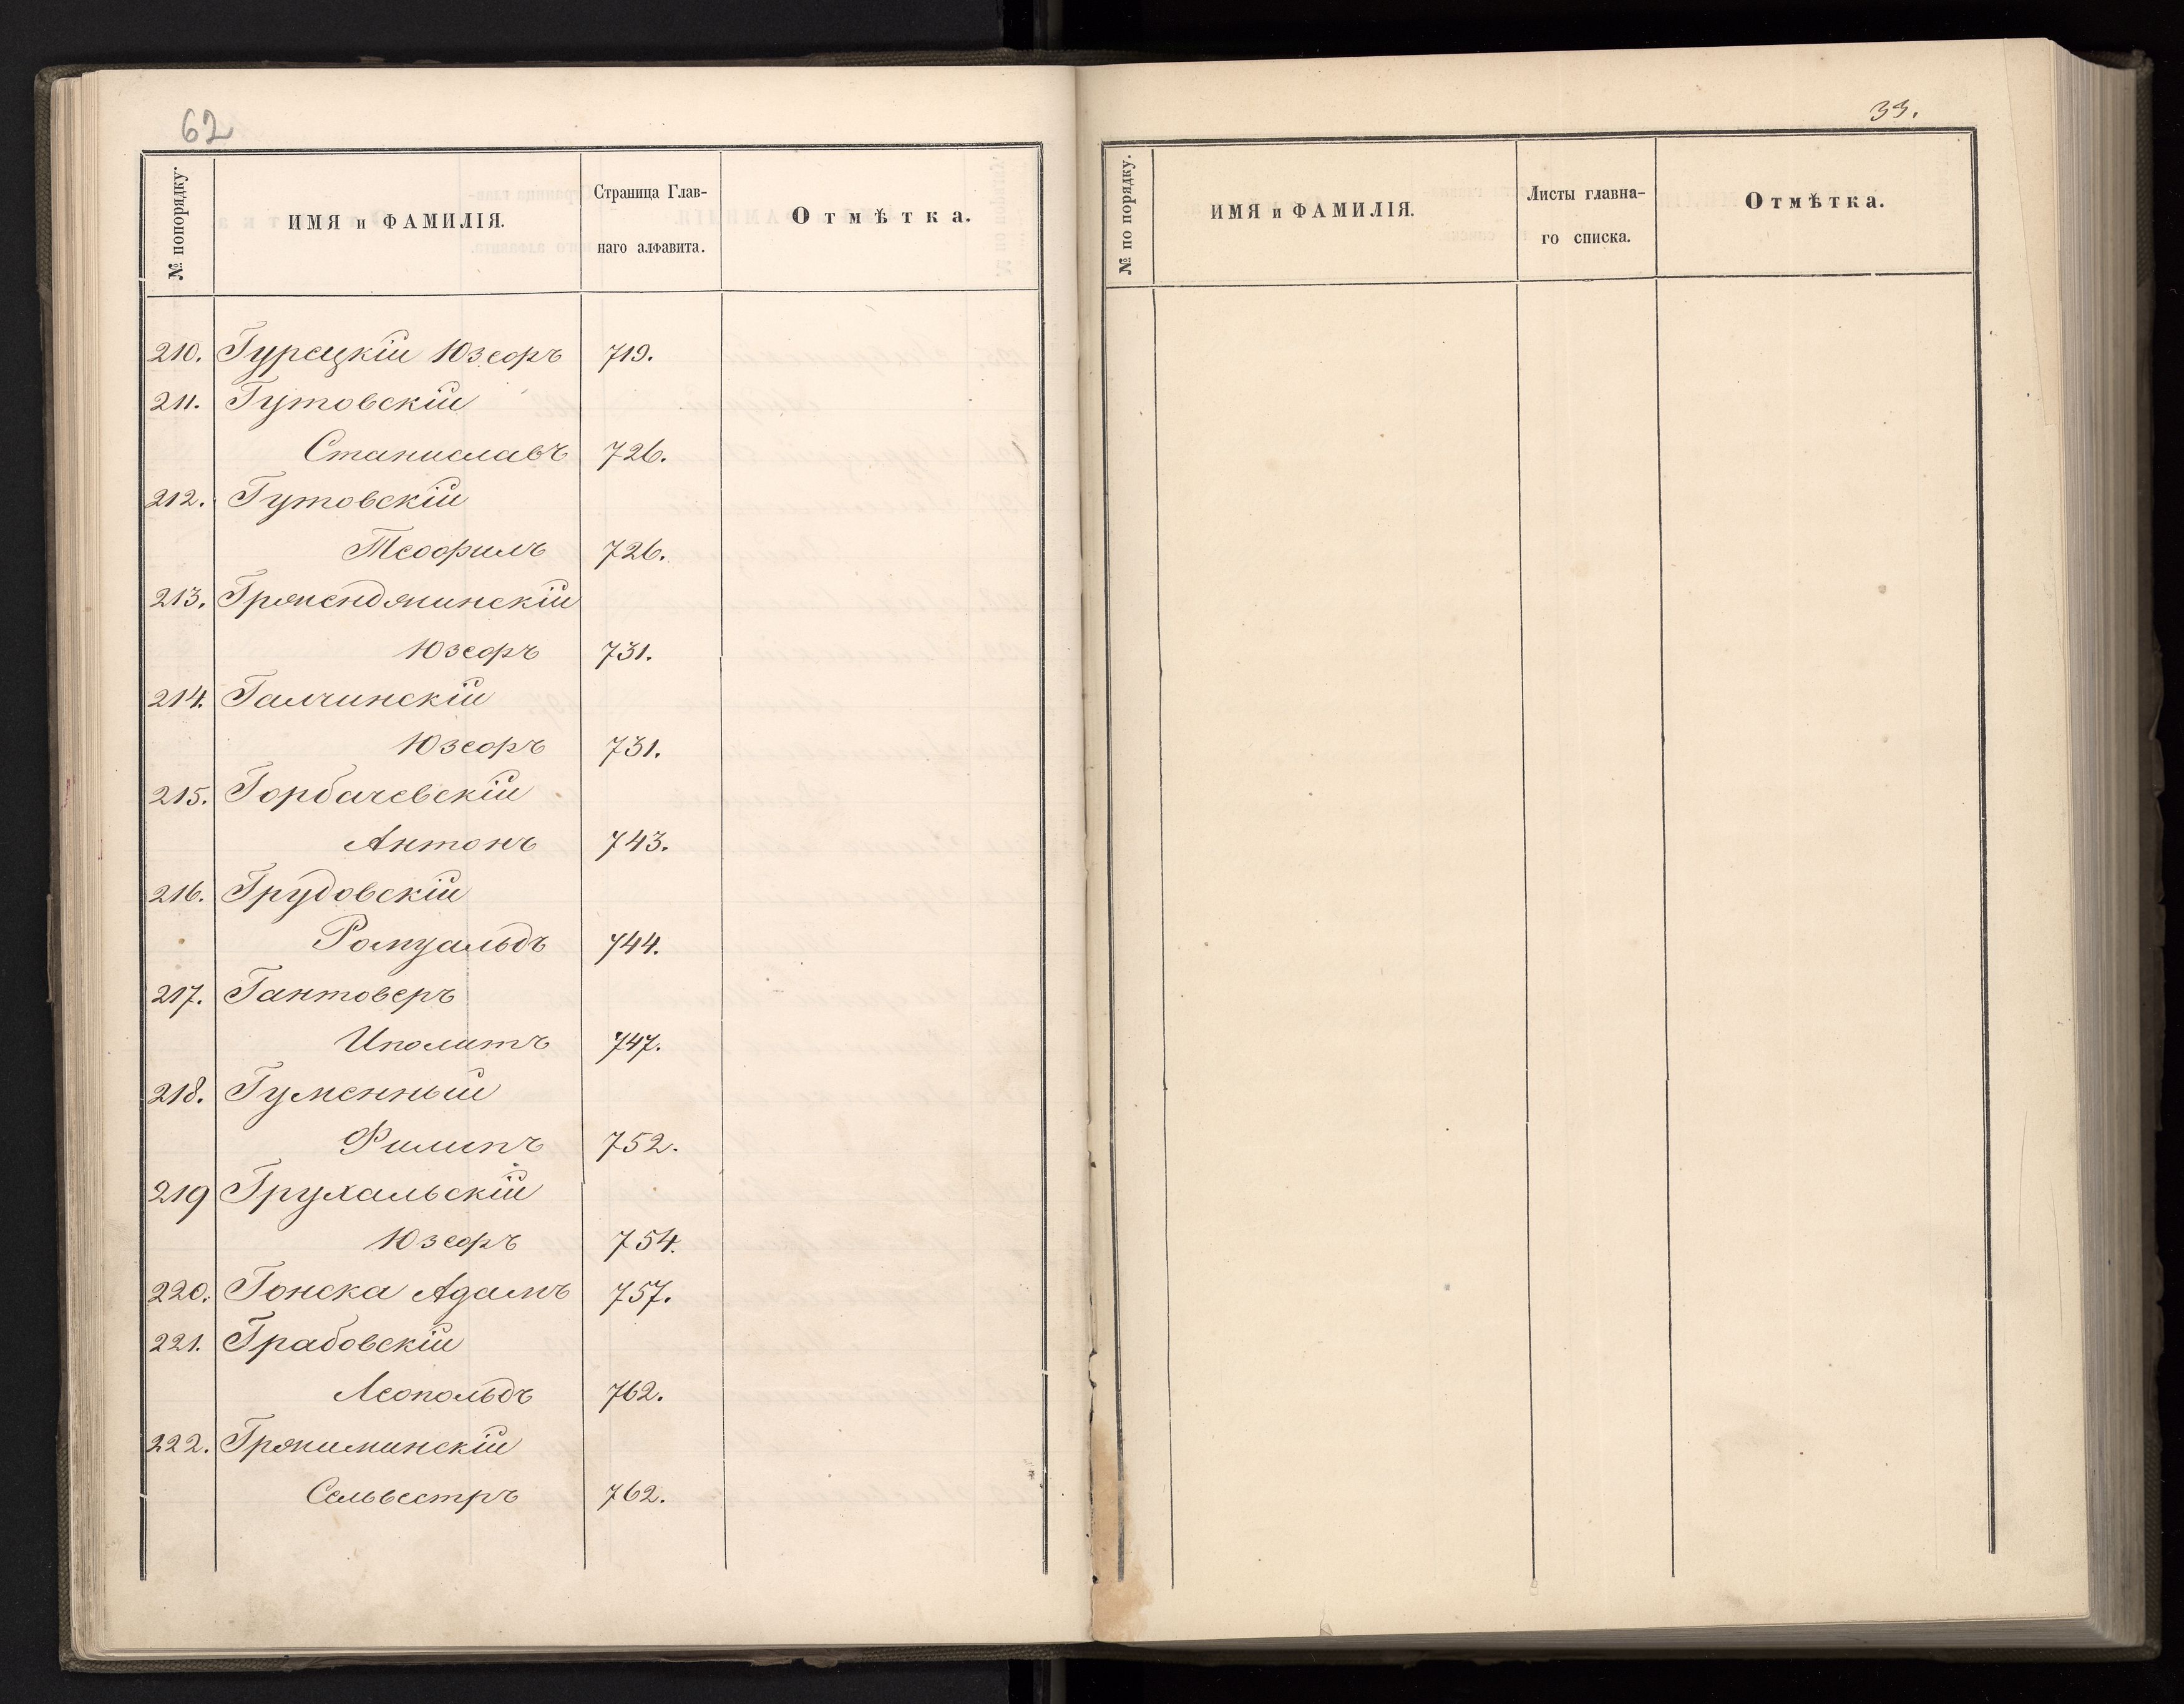 62
№ попорядку.
ИМЯ и ФАМИЛІЯ.
Страница Глав-
наго алфавита.
Отмѣтка.
210. Гурецкій Юзефъ 719.
211. Гутовскій
Станиславъ 726.
212. Гутовскій
Теофилъ 726.
213. Грженджинскій
Юзефъ 731.
214. Галчинскій
Юзефъ 731.
215. Горбачевскій
Антонъ 743.
216. Грудовскій
Ромуальдъ 744.
217. Гантоверъ
Иполитъ 747.
218. Гуменный
Филипъ 752.
219 Грухальскій
Юзефъ 754.
220. Гонска Адамъ 757.
221. Грабовскій
Леопольдъ 762.
222. Гржиминскій
Сельвестръ 762.
33.
№ по порядку.
ИМЯ и ФАМИЛІЯ.
Листы главна-
го списка.
Отмѣтка.